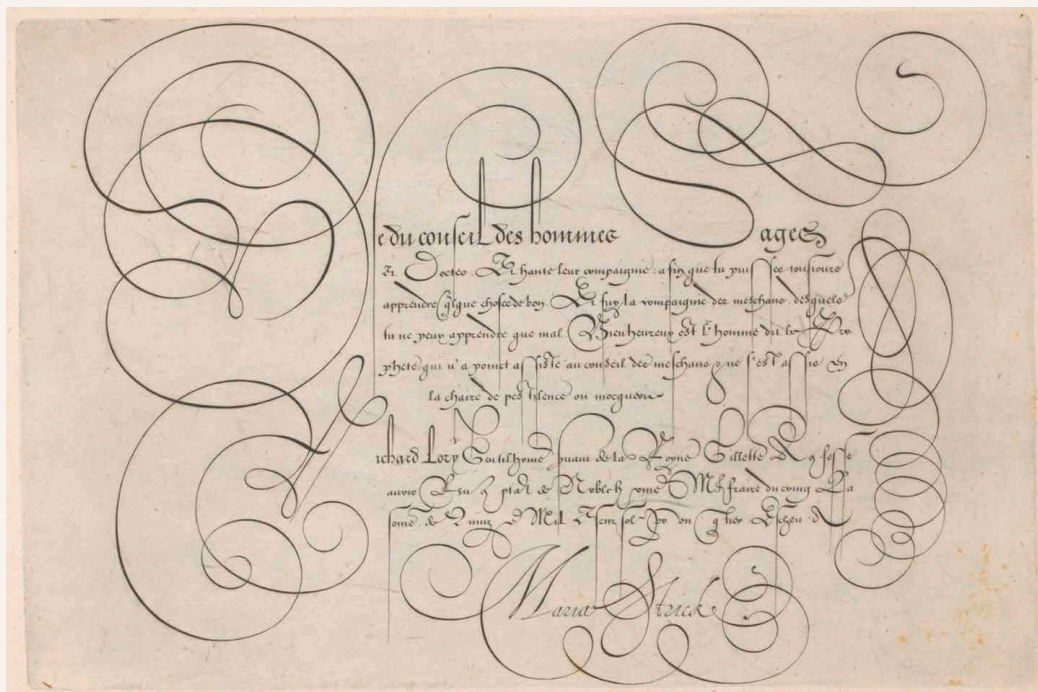 Use du conseil des hommes Sages
Et Doctes. Et hante leur compaignie: afin que tu puisses tousiours
apprendre qlque chose de bon. Et fuy la compaignie des meschans, desquels
tu ne peux apprendre que mal. Bienheureux est l'homme dit le Pro
phete, qui n'a poinct assisté au conseil des meschans, & ne s'est assis en
la chaire de pestilence ou mocqueur.
Richard Lory Gentilhomē suant de la Royne Gillette Rꝯfesse
avoir Reu ꝯptāt de Noble
somē de
Maria Strick